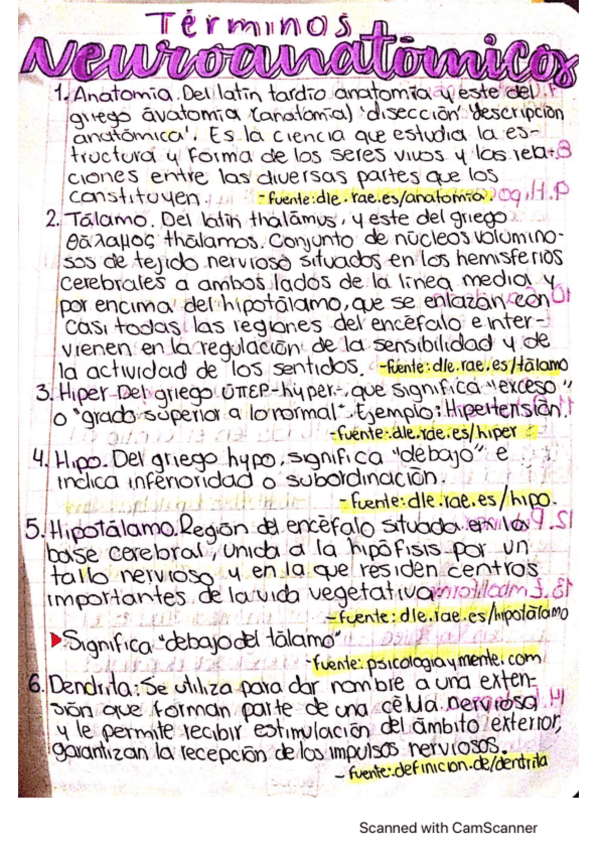 Términos
Neuroanatómicos
1. Anatomía. Del latín tardío anatomĭa y este del
griego ἀνατομία (anatomía) 'disección' 'descripción
anatómica'. Es la ciencia que estudia la es-
tructura y forma de los seres vivos y las rela-
ciones entre las diversas partes que los
constituyen. -fuente:dle.rae.es/anatomía.
2. Tálamo. Del latín thalămus, y este del griego
θάλαμος thálamos. Conjunto de núcleos volumino-
sos de tejido nervioso situados en los hemisferios
cerebrales a ambos lados de la línea media y
por encima del hipotálamo, que se enlazan con
casi todas las regiones del encéfalo e inter-
vienen en la regulación de la sensibilidad y de
la actividad de los sentidos. -fuente:dle.rae.es/tálamo
3. Hiper-Del griego ὑπερ-hyper-, que significa "exceso"
o "grado superior a lo normal". Ejemplo: Hipertensión.
-fuente:dle.rae.es/hiper
4. Hipo. Del griego hypo, significa "debajo" e
indica inferioridad o subordinación.
-fuente:dle.rae.es/hipo.
5. Hipotálamo. Región del encéfalo situada en la
base cerebral, unida a la hipófisis por un
tallo nervioso y en la que residen centros
importantes de la vida vegetativa
-fuente:dle.rae.es/hipotálamo
Significa "debajo del tálamo"
-fuente: psicologíaymente.com
6. Dendrita: Se utiliza para dar nombre a una exten-
sión que forman parte de una célula nerviosa
y le permite recibir estimulación del ámbito exterior,
garantizan la recepción de los impulsos nerviosos.
-fuente:definicion.de/dentrita
Scanned with CamScanner